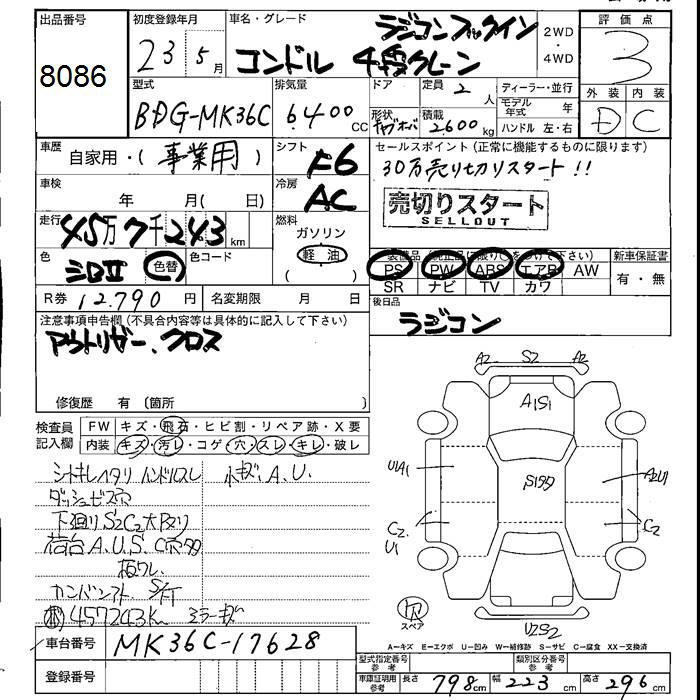 出品番号
8086
初度登録年月
23 5月
車名・グレード
ラジコンフックイン
コンドル 4段クレーン
2WD
・
4WD
評価点
3
外装 内装
D C
型式
BDG-MK36C
排気量
6400 CC
ドア
形状
定員 2 人
積載 2600 kg
ディーラー・並行
モデル年式 年
ハンドル 左・右
車歴
自家用・(事業用)
シフト
F6
セールスポイント(正常に機能するものに限ります)
30万売り切りスタート!!
売切りスタート
SELLOUT
車検
年 月( 日)
冷房
AC
走行
45万7千243km
燃料
ガソリン
軽油
( )
色
シロII
色替
色コード
PS PW ABS エアB AW
SR ナビ TV カワ
新車保証書
有・無
R券 12.790 円
名変期限 月 日
後日品
ラジコン
注意事項申告欄(不具合内容等は具体的に記入して下さい)
アウトリガー、クロス
修復歴 有(箇所 )
検査員記入欄
FW キズ・飛石・ヒビ割・リペア跡・X要
内装 キズ・汚レ・コゲ・穴・スレ・キレ・破レ
シートキレヘタリ ハンドルスレ 小キズ、A.U.
ダッシュビス穴
下廻りS2C2大Pメリ
荷台A.U.S.C
457243Km ミラーキズ
A2 S2 A2
A1S1
U1A1
A2U1
C2
U1
C2
スペア
U2S2
A−キズ E−エクボ U−凹み W−補修跡 S−サビ C−腐食 XX−交換済
車台番号
MK36C-17628
登録番号
型式指定番号
参考
類別区分番号
参考
車庫証明用
参考
長さ 798cm 幅 223cm 高さ 296cm